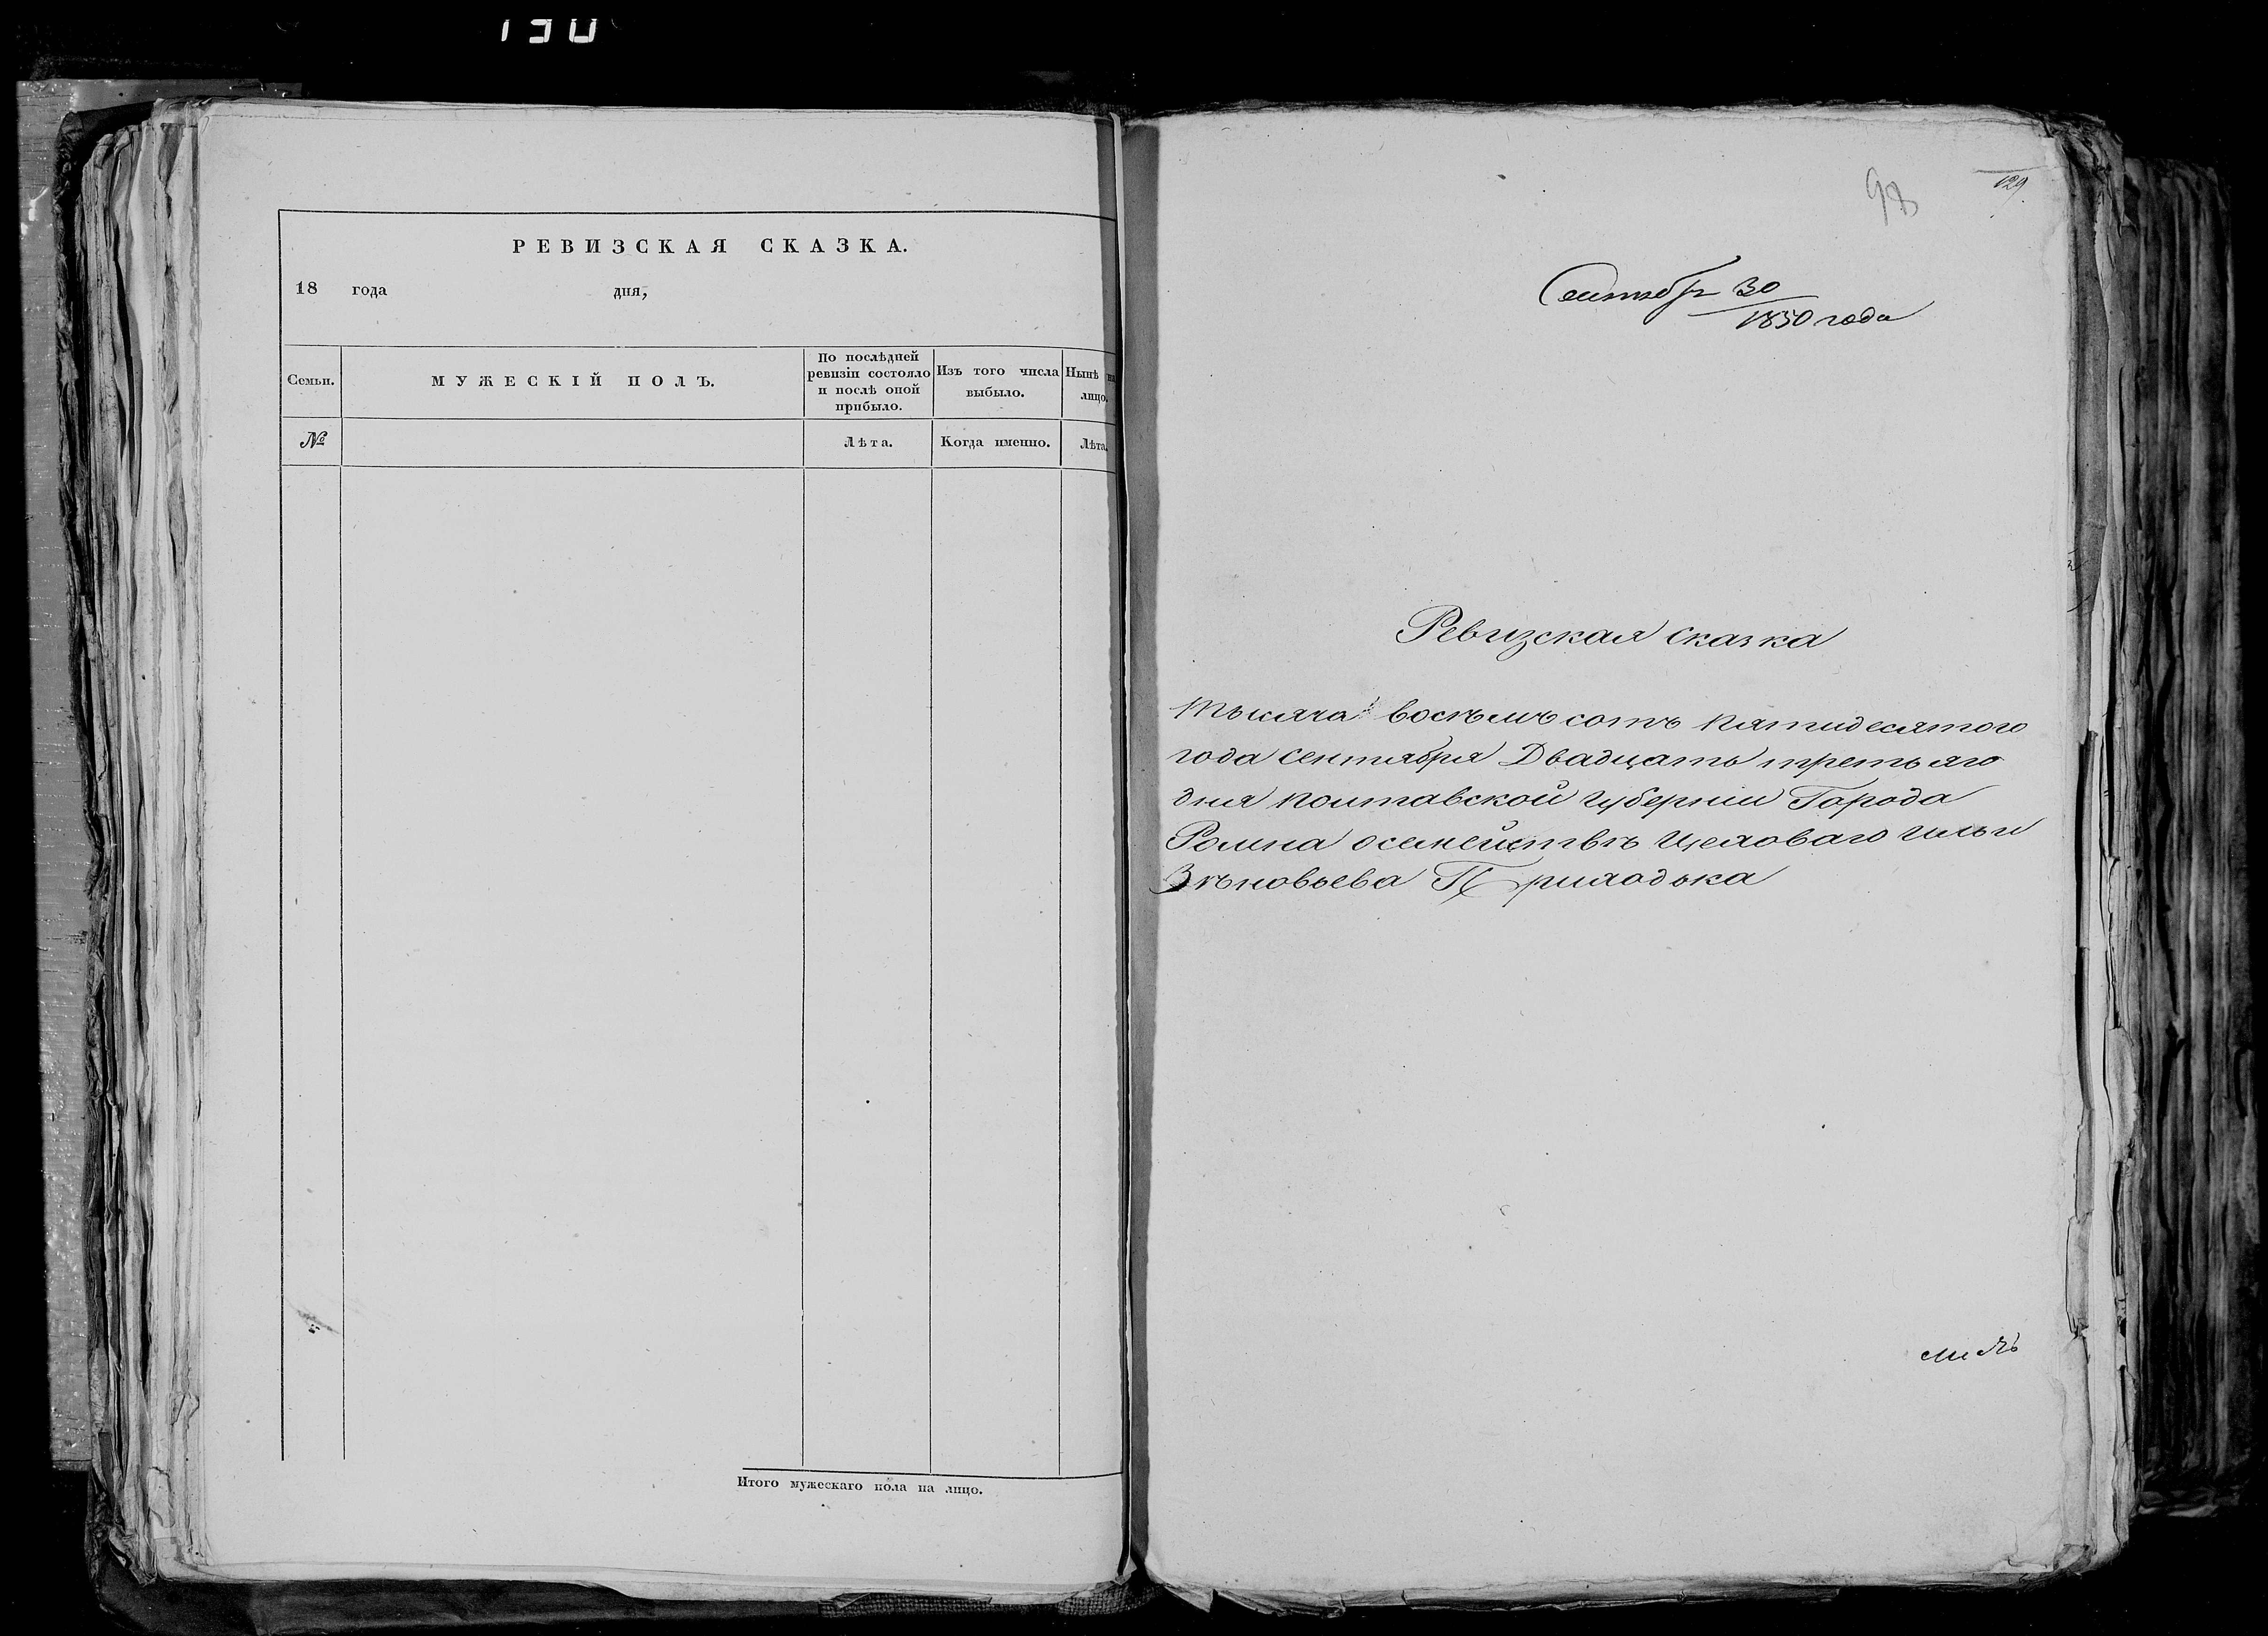 130
РЕВИЗСКАЯ СКАЗКА.
18 года дня,
Семьи.
МУЖЕСКІЙ ПОЛЪ.
По послѣдней
ревизіи состояло
и послѣ оной
прибыло.
Изъ того числа
выбыло.
Нынѣ на
лицо.
№
Лѣта.
Когда именно.
Лѣта.
Итого мужескаго пола на лицо.
129
30
1850 года
Ревизская сказка
тысяча восѣмъ сотъ пятидесятого
года сентября Двадцать третьяго
дня полтавской губернии Города
Ромна осемействѣ Цеховаго Ильи
Зѣновьева Приходька